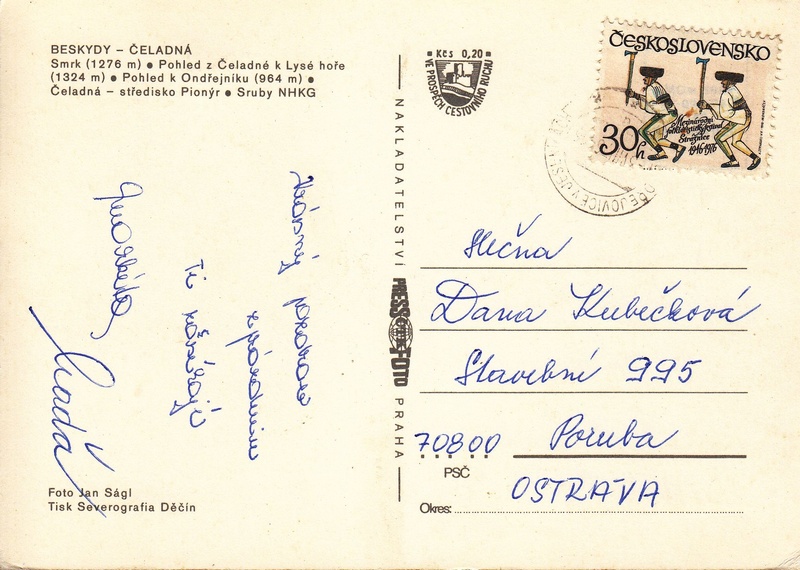 BESKYDY – ČELADNÁ
Smrk (1276 m) ● Pohled z Čeladné k Lysé hoře
(1324 m) ● Pohled k Ondřejníku (964 m) ●
Čeladná – středisko Pionýr ● Sruby NHKG
Krásný pozdrav
z prázdnin
Ti
Markéta
Foto Jan Ságl
Tisk Severografia Děčín
NAKLADATELSTVÍ
PRESSFOTO
PRAHA
Kčs 0,20
VE PROSPĚCH CESTOVNÍHO RUCHU
ČESKOSLOVENSKO
30h
Mezinárodní
folkloristický festival
Strážnice
1946 1976
Slečna
Dana Kubečková
Stavební 995
70800 Poruba
PSČ
OSTRAVA
Okres: